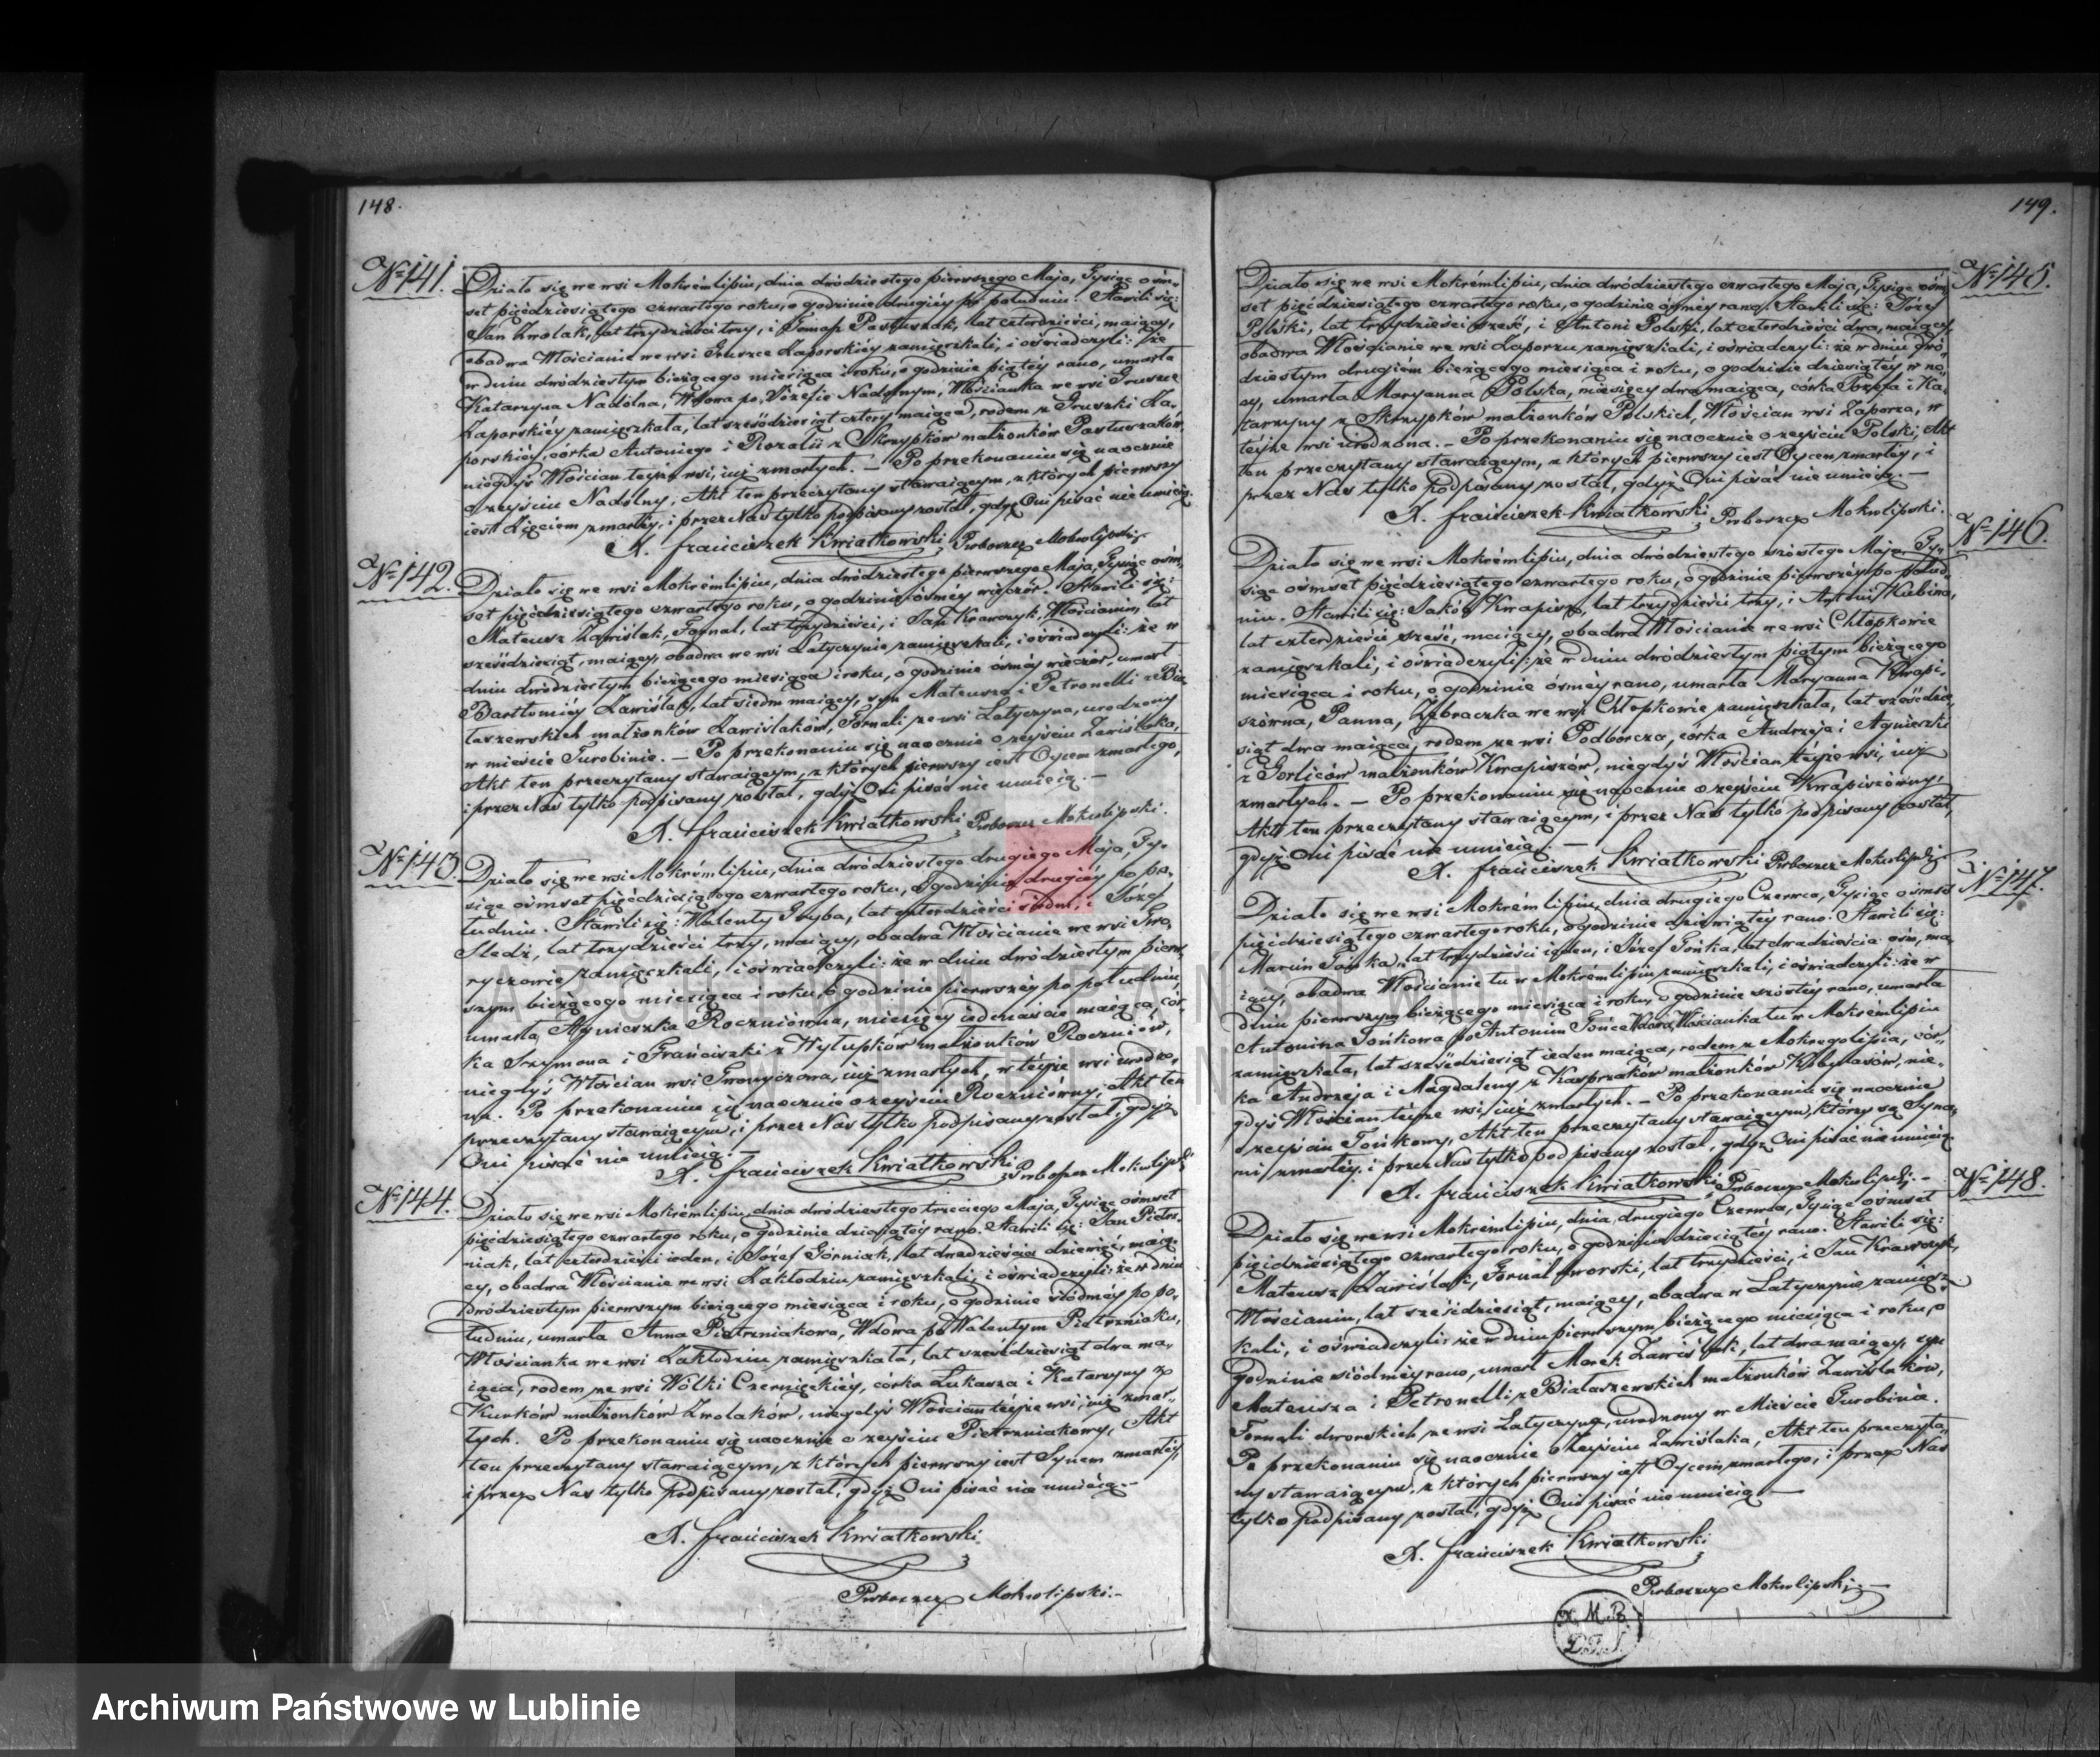 148.
№ 141.
Działo się we wsi Mokrémlipiu, dnia dwódziestego pierwszego Maja, Tysiąc ośm„
set pięćdziesiątego czwartego roku, o godzinie drugiéy po południu. Stawili się:
Jan Zwolak, lat trzydzieści trzy, i Tomasz Pastuszak, lat czterdzieści, maiący,
obadwa Włościanie we wsi Gruszce Zaporskiéy zamięszkali, i oświadczyli: że
w dniu dwódziestym bieżącego miesiąca i roku, o godzinie piątéy rano, umarła
Katarzyna Nadolna, Wdowa po Józefie Nadolnym, Włościanka we wsi Gruszce
Zaporskiéy zamięszkała, lat sześćdziesiąt cztery maiąca, rodem z Gruszki Za„
porskiéy, córka Antoniego i Rozalii z Skrzypków małżonków Pastuszaków,
niegdyś Włościan teyże wsi, iuż zmarłych. — Po przekonaniu się naocznie
o zeyściu Nadolny, Akt ten przeczytany stawaiącym, z których pierwszy
iest Zięciem zmarłéy, i przez Nas tylko podpisany został, gdyż Oni pisać nie umieią.
X. Franciszek Kwiatkowski Proboszcz Mokrolipski
№ 142.
Działo się we wsi Mokrémlipiu, dnia dwódziestego pierwszego Maja, Tysiąc ośm„
set pięćdziesiątego czwartego roku, o godzinie ósméy wieczór. Stawili się:
Mateusz Zawiślak, Fornal, lat trzydzieści, i Jan Krawczyk, Włościanin, lat
sześćdziesiąt, maiący, obadwa we wsi Latyczynie zamięszkali, i oświadczyli: że w
dniu dwódziestym bieżącego miesiąca i roku, o godzinie ósméy wieczór, umarł
Bartłomiéy Zawiślak, lat siedm maiący, syn Mateusza i Petronelli z Bia„
łaszewskich małżonków Zawiślaków, Fornali ze wsi Latyczyna, urodzony
w mieście Turobinie. — Po przekonaniu się naocznie o zeyściu Zawiślaka,
Akt ten przeczytany stawaiącym, z których pierwszy iest Oycem zmarłego,
i przez Nas tylko podpisany został, gdyż Oni pisać nie umieią. —
X. Franciszek Kwiatkowski Proboszcz Mokrolipski.
№ 143.
Działo się we wsi Mokrémlipiu, dnia dwódziestego drugiego Maja, Ty„
siąc ośmset pięćdziesiątego czwartego roku, o godzinie drugiéy po po„
łudniu. Stawili się: Walenty Gryba, lat czterdzieści siedm, i Józef
Sledź, lat trzydzieści trzy, maiący, obadwa Włościanie we wsi Two„
ryczowie zamięszkali, i oświadczyli: że w dniu dwódziestym pierw„
szym bieżącego miesiąca i roku, o godzinie pierwszéy po południu,
umarła Agnieszka Roczniówna, miesięcy iedenaście maiąca, cór„
ka Szymona i Franciszki z Wyłupków małżonków Roczniów,
niegdyś Włościan wsi Tworyczowa, iuż zmarłych, w téyże wsi urodzo„
na. Po przekonaniu się naocznie o zeyściu Roczniówny, Akt ten
przeczytany stawaiącym, i przez Nas tylko podpisany został, gdyż
Oni pisać nie umieią. —
X. Franciszek Kwiatkowski Proboszcz Mokrolipski
№ 144.
Działo się we wsi Mokrémlipiu, dnia dwódziestego trzeciego Maja, Tysiąc ośmset
pięćdziesiątego czwartego roku, o godzinie dziesiątéy rano. Stawili się: Jan Pietrz„
niak, lat czterdzieści ieden, i Józef Górniak, lat dwadzieścia dziewięć, maią„
cy, obadwa Włościanie we wsi Zakłodziu zamięszkali, i oświadczyli: że w dniu
dwódziestym pierwszym bieżącego miesiąca i roku, o godzinie siódméy po po„
łudniu, umarła Anna Pietrzniakowa, Wdowa po Walentym Pietrzniaku,
Włościanka we wsi Zakłodziu zamięszkała, lat sześćdziesiąt dwa ma„
iąca, rodem ze wsi Wólki Czernięckiéy, córka Łukasza i Katarzyny z
Kurków małżonków Zwolaków, niegdyś Włościan téyże wsi, iuż zmar„
łych. Po przekonaniu się naocznie o zeyściu Pietrzniakowy, Akt
ten przeczytany stawaiącym, z których pierwszy iest Synem zmarłéy,
i przez Nas tylko podpisany został, gdyż Oni pisać nie umieią. —
X. Franciszek Kwiatkowski
Proboszcz Mokrolipski. —
149.
№ 145.
Działo się we wsi Mokrémlipiu, dnia dwódziestego czwartego Maja, Tysiąc ośm„
set pięćdziesiątego czwartego roku, o godzinie ósméy rano. Stawili się: Józef
Polski, lat trzydzieści sześć, i Antoni Polski, lat czterdzieści dwa, maiący,
obadwa Włościanie we wsi Zaporzu zamięszkali, i oświadczyli: że w dniu dwó„
dziestym drugiem bieżącego miesiąca i roku, o godzinie dziesiątéy w no„
cy, umarła Maryanna Polska, miesięcy dwa maiąca, córka Józefa i Ka„
tarzyny z Skrzypków małżonków Polskich, Włościan wsi Zaporza, w
teyże wsi urodzona. — Po przekonaniu się naocznie o zeyściu Polski, Akt
ten przeczytany stawaiącym, z których pierwszy iest Oycem zmarłéy, i
przez Nas tylko podpisany został, gdyż Oni pisać nie umieią. —
X. Franciszek Kwiatkowski Proboszcz Mokrolipski.
№ 146.
Działo się we wsi Mokrémlipiu, dnia dwódziestego szóstego Maja, Ty„
siąc ośmset pięćdziesiątego czwartego roku, o godzinie pierwszéy po połud„
niu. Stawili się: Jakób Kwapisz, lat trzydzieści trzy, i Antoni Kubina,
lat czterdzieści sześć, maiący, obadwa Włościanie we wsi Chłopkowie
zamięszkali, i oświadczyli: że w dniu dwódziestym piątym bieżącego
miesiąca i roku, o godzinie ósméy rano, umarła Maryanna Kwapi„
szówna, Panna, Żebraczka we wsi Chłopkowie zamięszkała, lat sześćdzie„
siąt dwa maiąca, rodem ze wsi Podborcza, córka Andrzeja i Agnieszki
z Gorliców małżonków Kwapiszów, niegdyś Włościan téyże wsi, iuż
zmarłych. — Po przekonaniu się naocznie o zeyściu Kwapiszówny,
Akt ten przeczytany stawaiącym, i przez Nas tylko podpisany został,
gdyż Oni pisać nie umieią. —
X. Franciszek Kwiatkowski Proboszcz Mokrolipski
№ 147.
Działo się we wsi Mokrémlipiu, dnia drugiego Czerwca, Tysiąc ośmset
pięćdziesiątego czwartego roku, o godzinie dziewiątéy rano. Stawili się:
Marcin Tońka, lat trzydzieści ieden, i Józef Tońka, lat dwadzieścia ośm, ma„
iący, obadwa Włościanie tu w Mokrémlipiu zamięszkali, i oświadczyli: że w
dniu pierwszym bieżącego miesiąca i roku, o godzinie szóstéy rano, umarła
Antonina Tońkowa po Antonim Tońce Wdowa, Włościanka tu w Mokrémlipiu
zamięszkała, lat sześćdziesiąt ieden maiąca, rodem z Mokregolipia, cór„
ka Andrzeja i Magdaleny z Kasprzaków małżonków Kobylasów, nie„
gdyś Włościan teyże wsi, iuż zmarłych. — Po przekonaniu się naocznie
o zeyściu Tońkowy, Akt ten przeczytany stawaiącym, którzy są Syna„
mi zmarłéy, i przez Nas tylko podpisany został, gdyż Oni pisać nie umieią.
X. Franciszek Kwiatkowski Proboszcz Mokrolipski. —
№ 148.
Działo się we wsi Mokrémlipiu, dnia, drugiego Czerwca, Tysiąc ośmset
pięćdziesiątego czwartego roku, o godzinie dziesiątéy rano. Stawili się:
Mateusz Zawiślak, Fornal dworski, lat trzydzieści, i Jan Krawczyk,
Włościanin, lat sześćdziesiąt, maiący, obadwa w Latyczynie zamięsz„
kali, i oświadczyli: że w dniu pierwszym bieżącego miesiąca i roku, o
godzinie siódméy rano, umarł Marek Zawiślak, lat dwa maiący, syn
Mateusza i Petronelli z Białaszewskich małżonków Zawiślaków,
Fornali dworskich ze wsi Latyczyna, urodzony w Mieście Turobinie.
Po przekonaniu się naocznie o zeyściu Zawiślaka, Akt ten przeczyta„
ny stawaiącym, z których pierwszy iest Oycem zmarłego, i przez Nas
tylko podpisany został, gdyż Oni pisać nie umieią. —
X. Franciszek Kwiatkowski
Proboszcz Mokrolipski. —
ARCHIWUM PAŃSTWOWE
W LUBLINIE
Archiwum Państwowe w Lublinie